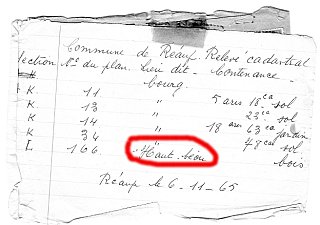 Commune de Réauf Relevé cadastral
Section N° du plan Lieu dit Contenance
bourg
K 11 " 5 ares 18 ca sol
K 13 " 23 ca sol
K 14 " 18 ares 63 ca jardin
K 34 " 48 ca sol
L 166 Haut-beau bois
Réaup le 6-11-65